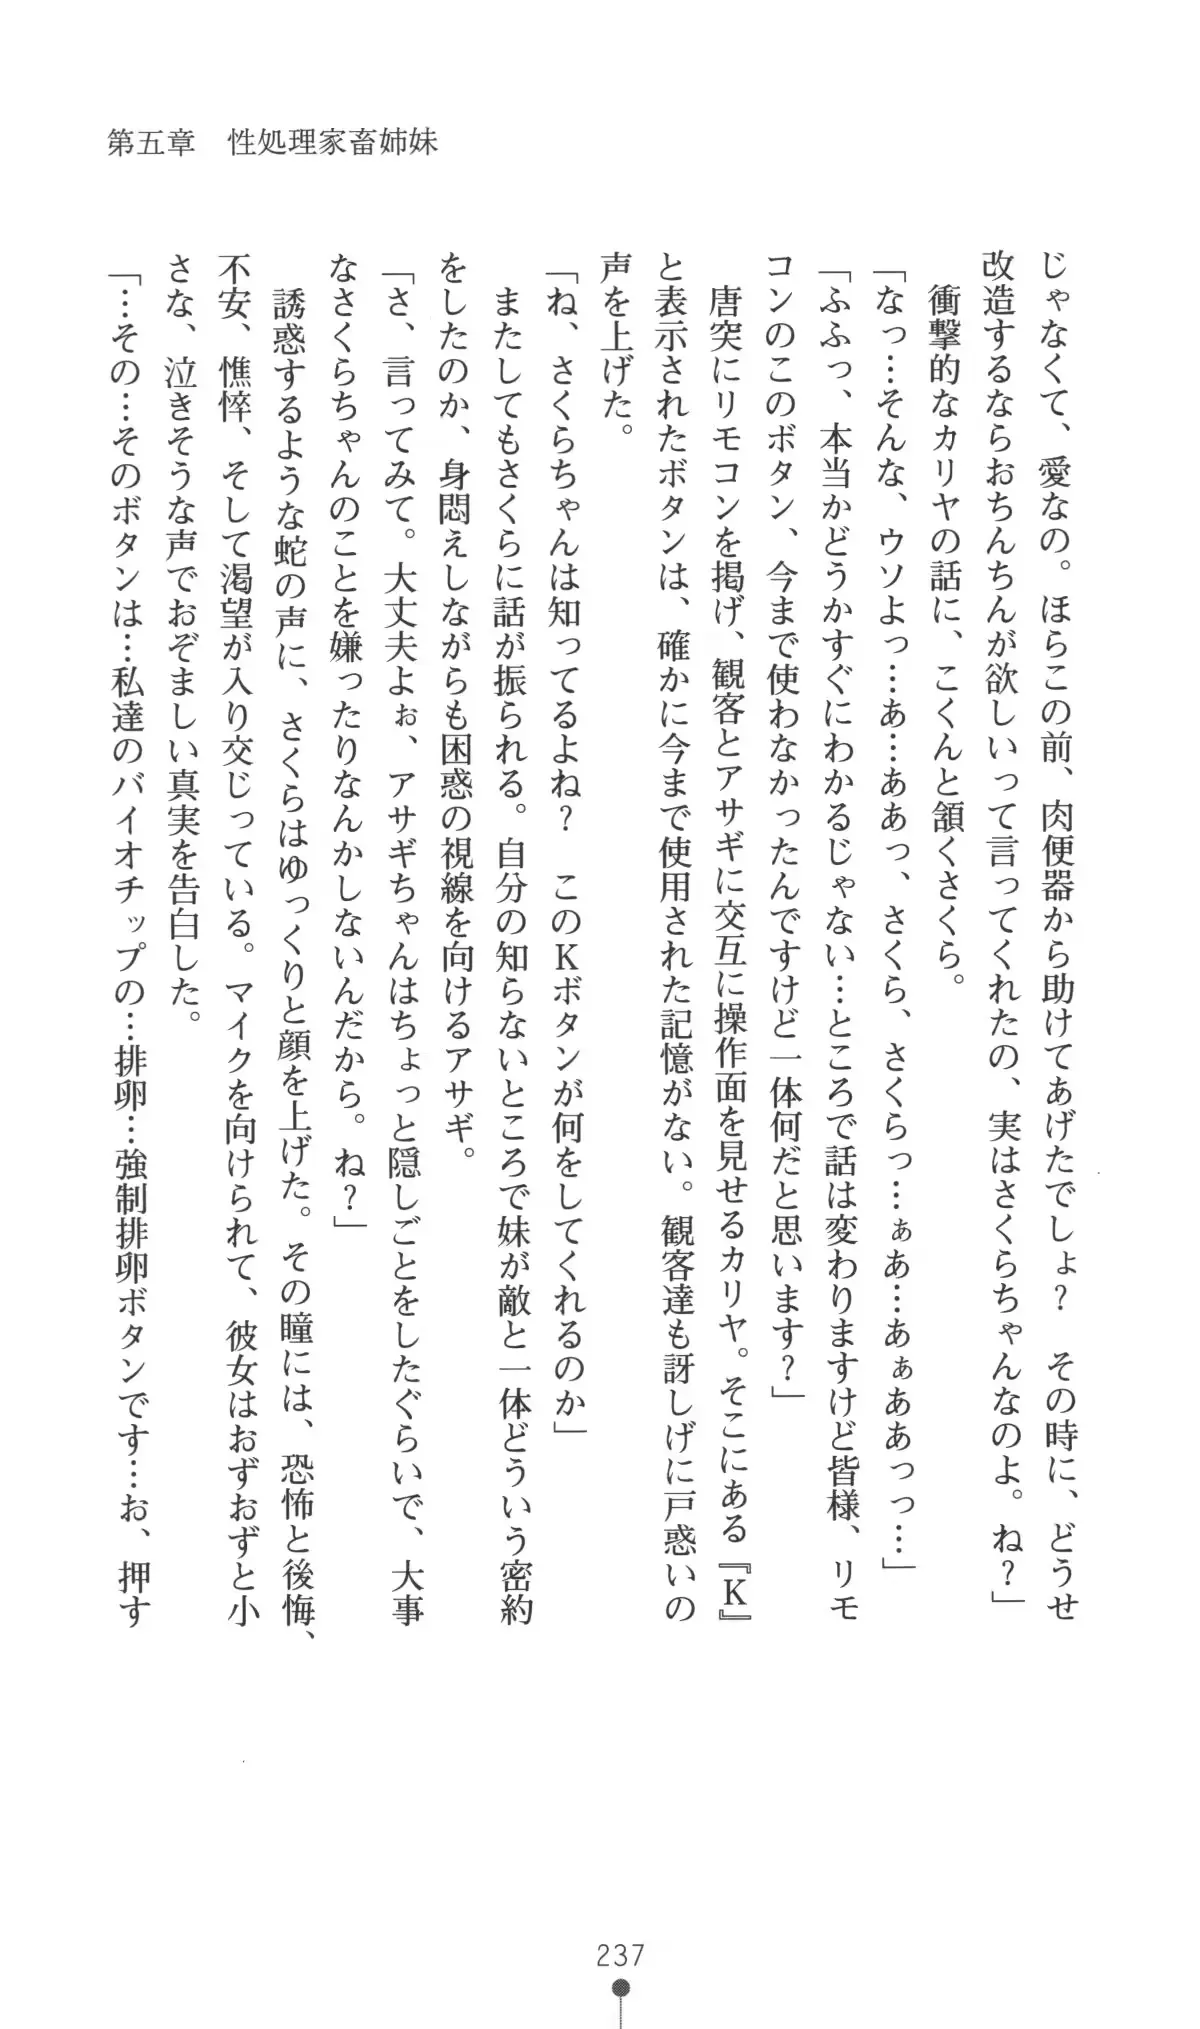 第五章　性処理家畜姉妹
じゃなくて、愛なの。ほらこの前、肉便器から助けてあげたでしょ？　その時に、どうせ
改造するならおちんちんが欲しいって言ってくれたの、実はさくらちゃんなのよ。ね？」
　衝撃的なカリヤの話に、こくんと頷くさくら。
「なっ…そんな、ウソよっ…あ…ああっ、さくら、さくらっ…ぁあ…あぁああっっ…」
「ふふっ、本当かどうかすぐにわかるじゃない…ところで話は変わりますけど皆様、リモ
コンのこのボタン、今まで使わなかったんですけど一体何だと思います？」
　唐突にリモコンを掲げ、観客とアサギに交互に操作面を見せるカリヤ。そこにある『Ｋ』
と表示されたボタンは、確かに今まで使用された記憶がない。観客達も訝しげに戸惑いの
声を上げた。
「ね、さくらちゃんは知ってるよね？　このＫボタンが何をしてくれるのか」
　またしてもさくらに話が振られる。自分の知らないところで妹が敵と一体どういう密約
をしたのか、身悶えしながらも困惑の視線を向けるアサギ。
「さ、言ってみて。大丈夫よぉ、アサギちゃんはちょっと隠しごとをしたぐらいで、大事
なさくらちゃんのことを嫌ったりなんかしないんだから。ね？」
　誘惑するような蛇の声に、さくらはゆっくりと顔を上げた。その瞳には、恐怖と後悔、
不安、憔悴、そして渇望が入り交じっている。マイクを向けられて、彼女はおずおずと小
さな、泣きそうな声でおぞましい真実を告白した。
「…その…そのボタンは…私達のバイオチップの…排卵…強制排卵ボタンです…お、押す
237